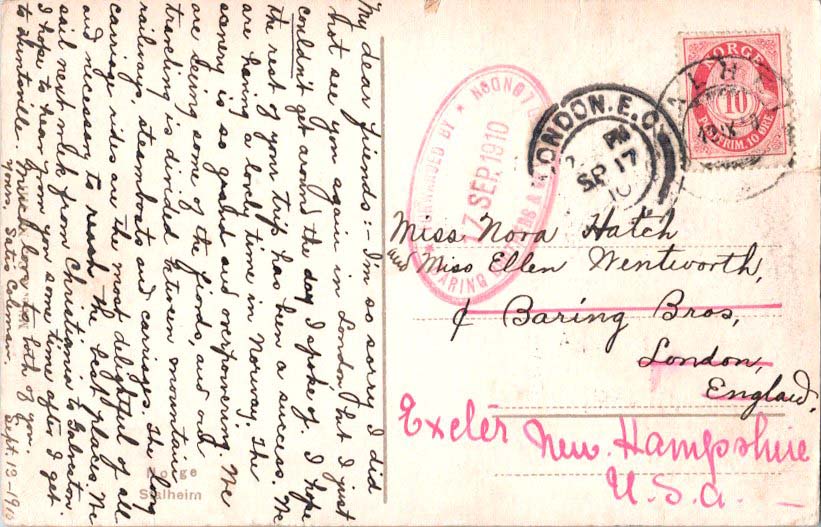 My dear friends:- I'm so sorry I did
not see you again in London but I just
couldn't get around the day I spoke of. I hope
the rest of your trip has been a success. We
are having a lovely time in Norway. The
scenery is so grand and overpowering. We
are seeing some of the fiords, and our
traveling is divided between mountain
railways, steamboats and carriages. The long
carriage rides are the most delightful of all
and necessary to reach the best places. We
sail next week from Christiania to Galveston.
I hope to hear from you some time after I get
to Huntsville. Much love to both of you.
Yours, Satis Coleman.
Sept. 13-1910
Norge
Stalheim
FORWARDED BY
17 SEP. 1910
BARING BROTHERS & CO
LONDON
LONDON. E.C.
PM
SP 17
10
NORGE
10
POSTFRIM. 10 ØRE.
Miss Nora Hatch
and Miss Ellen Wentworth,
% Baring Bros,
London,
England,
Exeter
New. Hampshire
U.S.a.